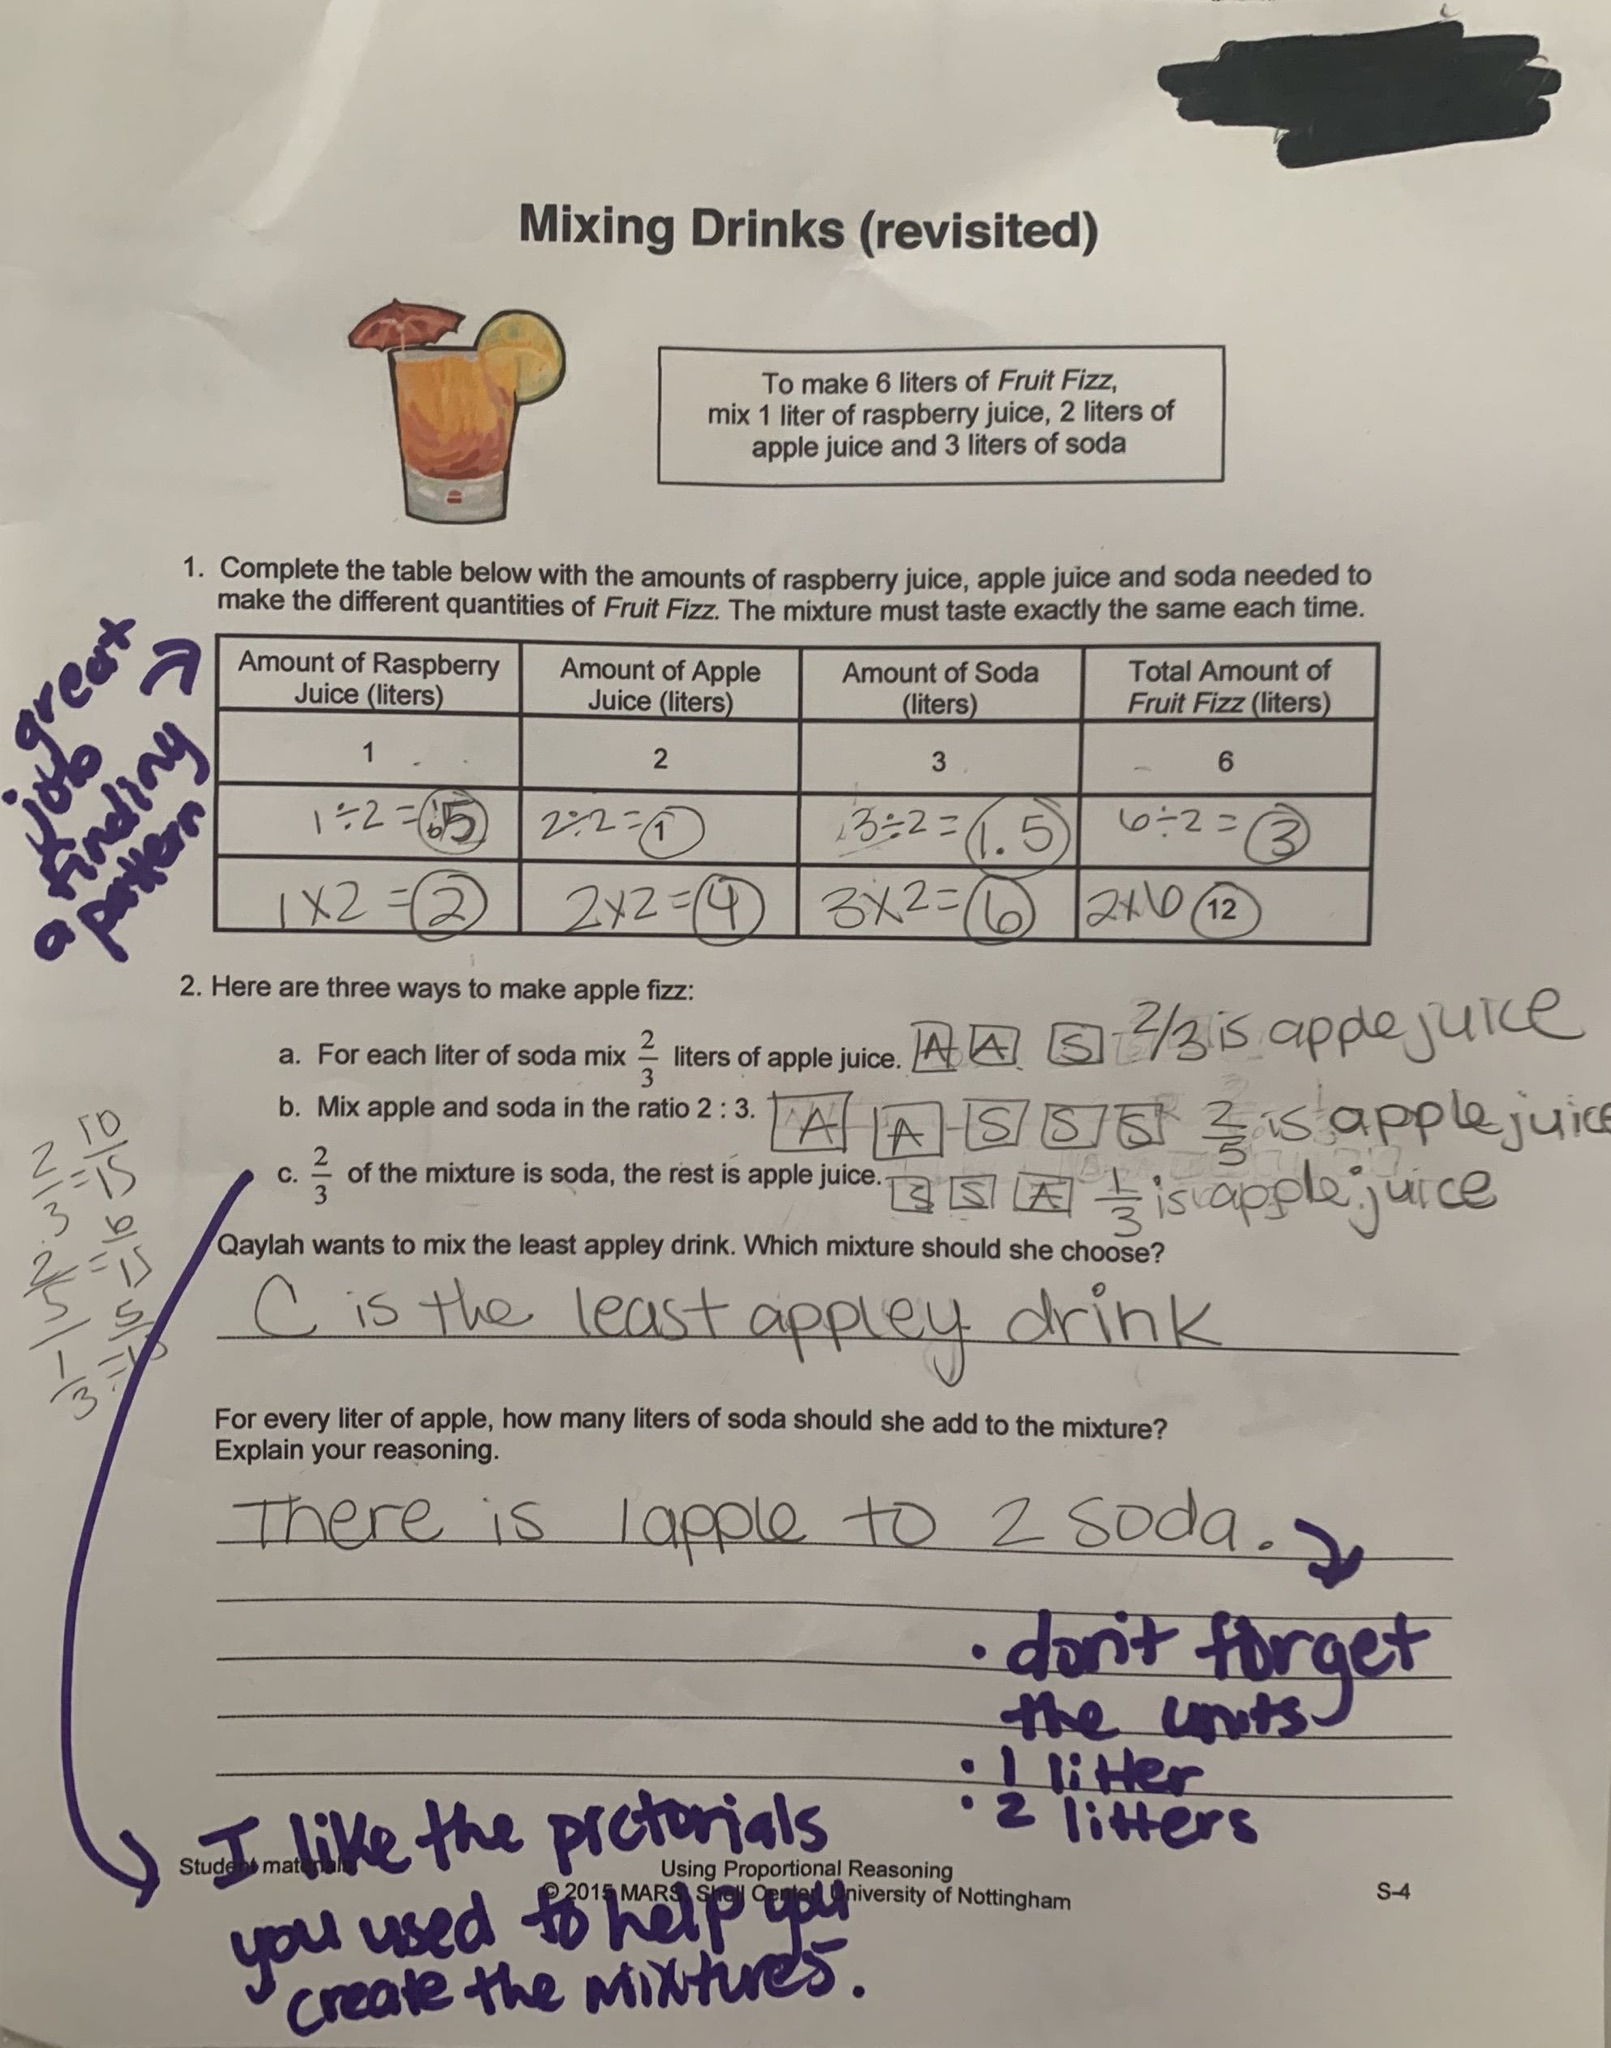 Mixing Drinks (revisited)
To make 6 liters of Fruit Fizz,
mix 1 liter of raspberry juice, 2 liters of
apple juice and 3 liters of soda
1. Complete the table below with the amounts of raspberry juice, apple juice and soda needed to
make the different quantities of Fruit Fizz. The mixture must taste exactly the same each time.
great
job
finding
a pattern
Amount of Raspberry Juice (liters) Amount of Apple Juice (liters) Amount of Soda (liters) Total Amount of Fruit Fizz (liters)
1 2 3 6
1÷2= .5 2÷2=1 3÷2=1.5 6÷2=3
1x2=2 2x2=4 3x2=6 2x6 12
2. Here are three ways to make apple fizz:
a. For each liter of soda mix 2/3 liters of apple juice. A A S 2/3 is apple juice
b. Mix apple and soda in the ratio 2 : 3. A A S S S 2/5 is apple juice
c. 2/3 of the mixture is soda, the rest is apple juice. S S A 1/3 is apple juice
2/3=10/15
2/5=6/15
1/3=5/15
Qaylah wants to mix the least appley drink. Which mixture should she choose?
C is the least appley drink
For every liter of apple, how many liters of soda should she add to the mixture?
Explain your reasoning.
There is 1 apple to 2 soda.
• don't forget
the units
• 1 litter
• 2 litters
I like the pictorials
you used to help you
create the mixtures.
Student materials Using Proportional Reasoning S-4
© 2015 MARS, Shell Center, University of Nottingham